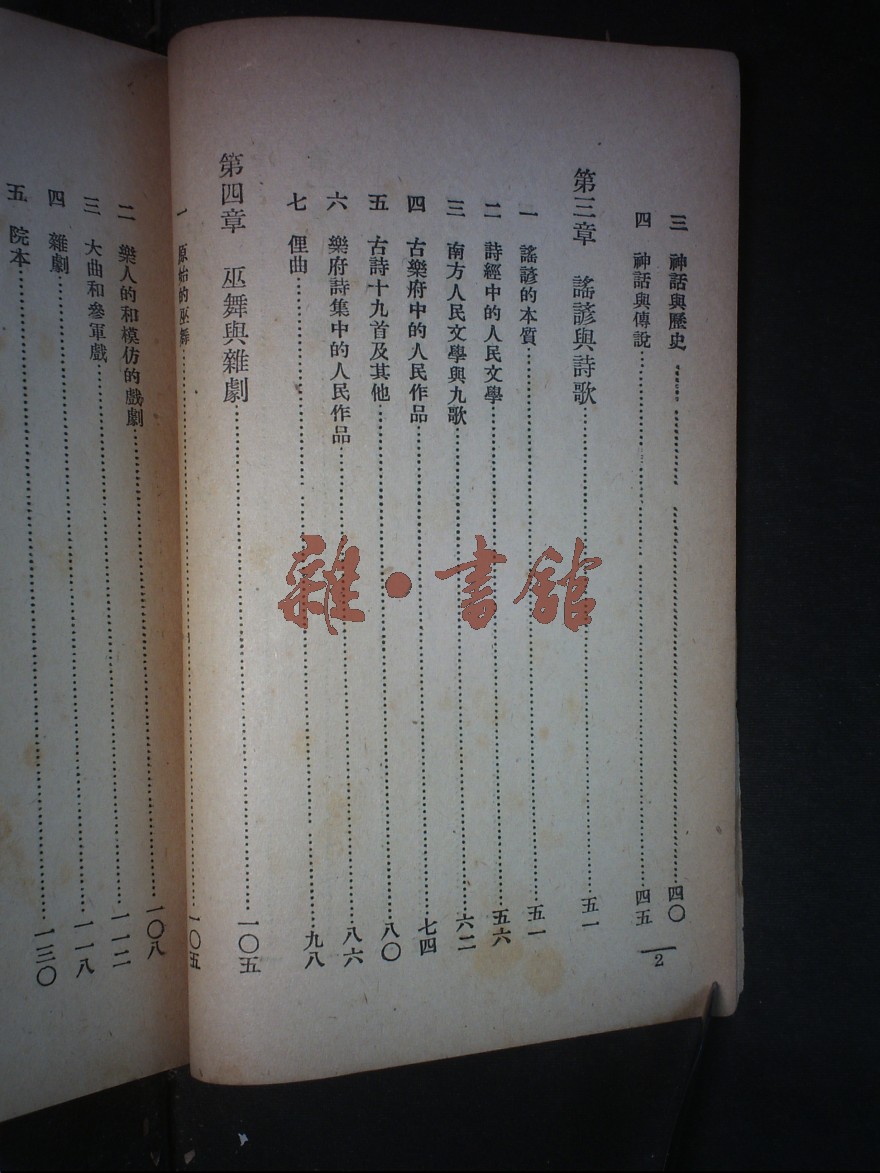 三 神話與歷史……四〇
四 神話與傳說……四五
第三章 謠諺與詩歌……五一
一 謠諺的本質……五一
二 詩經中的人民文學……五六
三 南方人民文學與九歌……六二
四 古樂府中的人民作品……七四
五 古詩十九首及其他……八〇
六 樂府詩集中的人民作品……八六
七 俚曲……九八
第四章 巫舞與雜劇……一〇五
一 原始的巫舞……一〇五
二 樂人的和模仿的戲劇……一〇八
三 大曲和參軍戲……一一二
四 雜劇……一一八
五 院本……一三〇
2
雜·書館